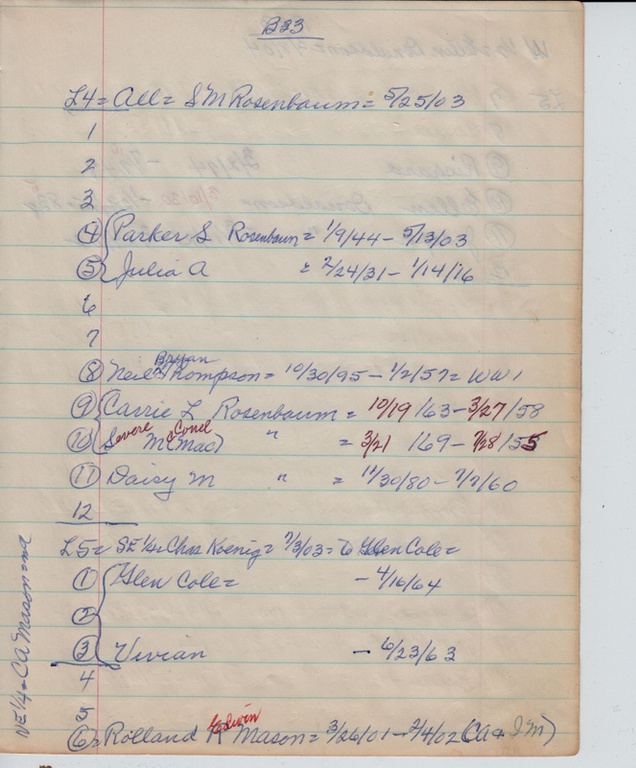 B33
L4 = All = S M Rosenbaum = 5/25/03
1
2
3
④ Parker S Rosenbaum = 1/9/44 - 5/13/03
⑤ Julia A = 2/24/31 - 1/14/16
6
7
Bryan
⑧ Neil Thompson = 10/30/95 - 1/2/57 = WW 1
⑨ Carrie L Rosenbaum = 10/19/63 - 3/27/58
⑩ Severe McConel (Mac) " = 3/21/69 - 7/28/55
⑪ Daisy M " = 11/30/80 - 7/7/60
12
L5 = SE 1/4 = Chas Koenig = 7/3/03 = to Glen Cole =
① Glen Cole = - 4/16/64
②
③ Vivian - 6/23/63
4
5
Edwin
⑥ = Rolland R Mason = 3/26/01 - 2/4/02 (CA + I M)
NE 1/4 = CA Mason =